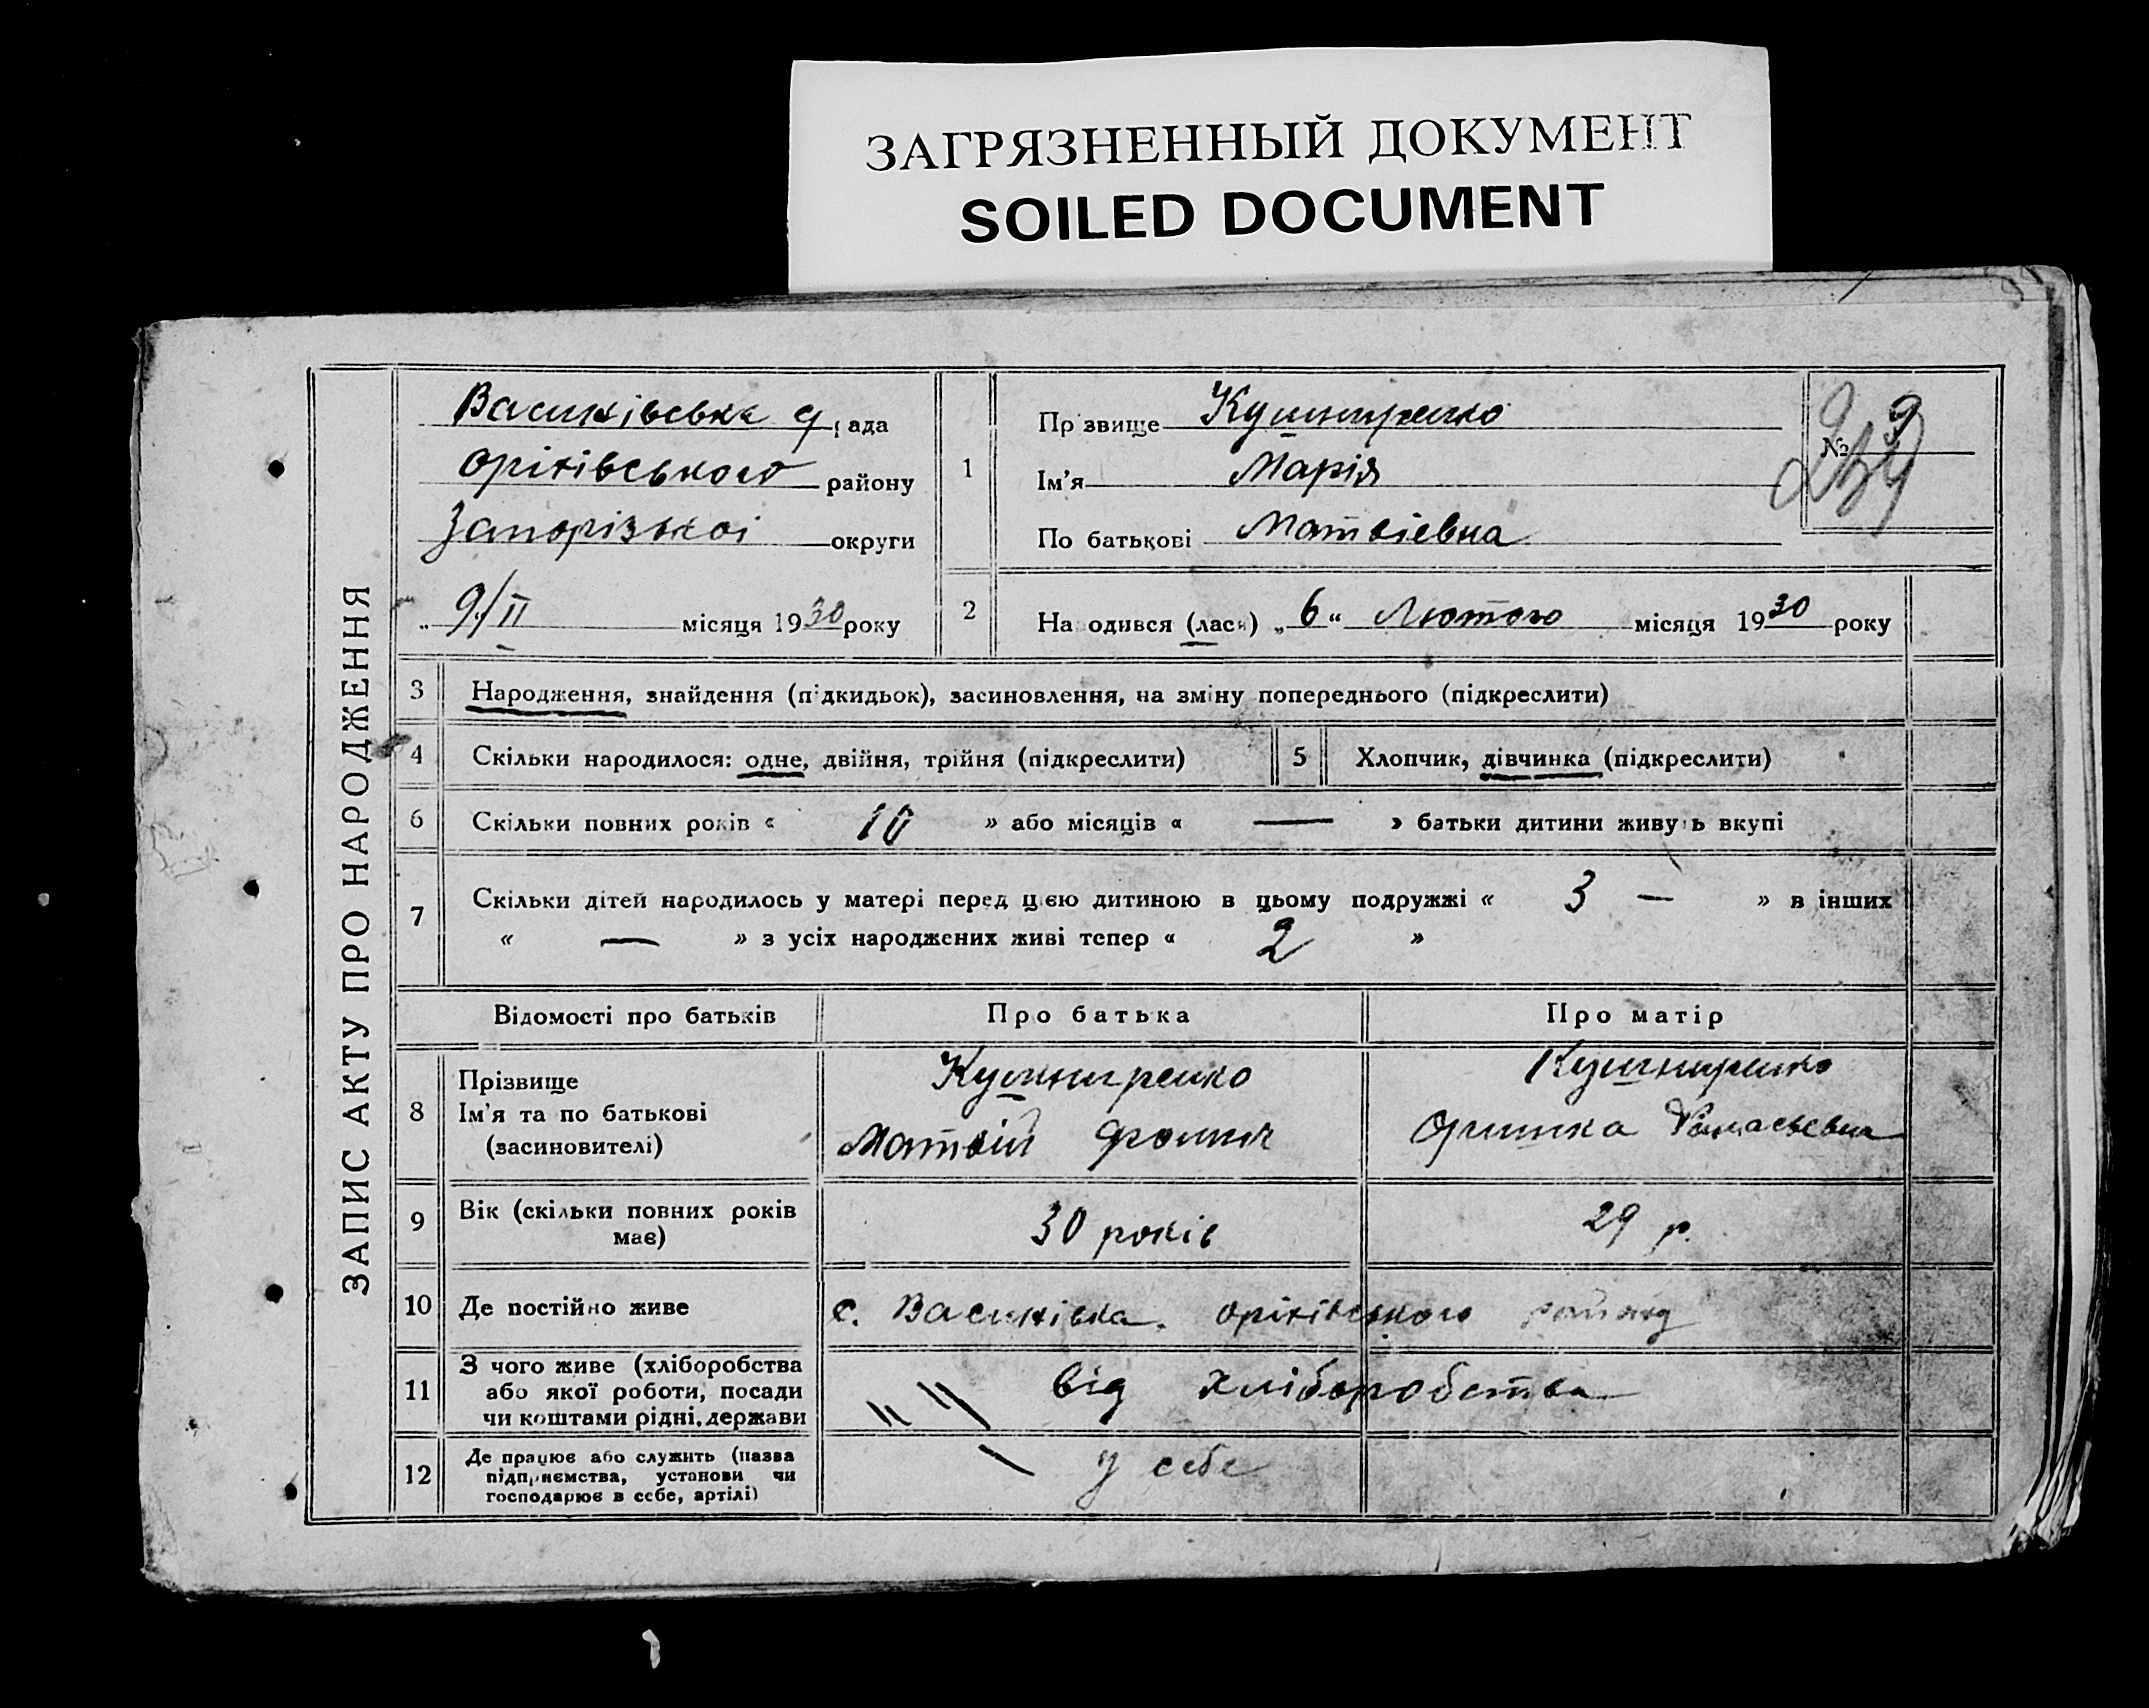 ЗАГРЯЗНЕННЫЙ ДОКУМЕНТ
SOILED DOCUMENT
ЗАПИС АКТУ ПРО НАРОДЖЕННЯ
Васинівська рада
Оріхівського району
Запорізької округи
„ 9/II місяця 1930 року
1
Прізвище Кушниренко
Ім'я Марія
По батькові Матвіевна
№ 9
2
Народився (лася) „6“ Лютого місяця 1930 року
3 Народження, знайдення (підкидьок), засиновлення, на зміну попереднього (підкреслити)
4 Скільки народилося: одне, двійня, трійня (підкреслити)
5 Хлопчик, дівчинка (підкреслити)
6 Скільки повних років « 10 » або місяців « — » батьки дитини живуть вкупі
7 Скільки дітей народилось у матері перед цією дитиною в цьому подружжі « 3 — » в інших
« — » з усіх народжених живі тепер « 2 »
Відомості про батьків Про батька Про матір
8 Прізвище
Ім'я та по батькові
(засиновителі)
Кушниренко
Матвій Фомич
Кушниренко
Оришка
9 Вік (скільки повних років
має)
30 років
29 р.
10 Де постійно живе
с. Васинівка. Оріхівського району
11 З чого живе (хліборобства
або якої роботи, посади
чи коштами рідні, держави
від хліборобства
12 Де працює або служить (назва
підприємства, установи чи
господарює в себе, артілі)
у себе